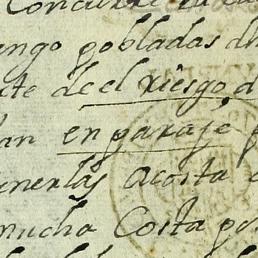 Concurre
engo pobladas dh
te de el riesgo, d
an en paraje p
nerlas acosta d
mucha Costa po